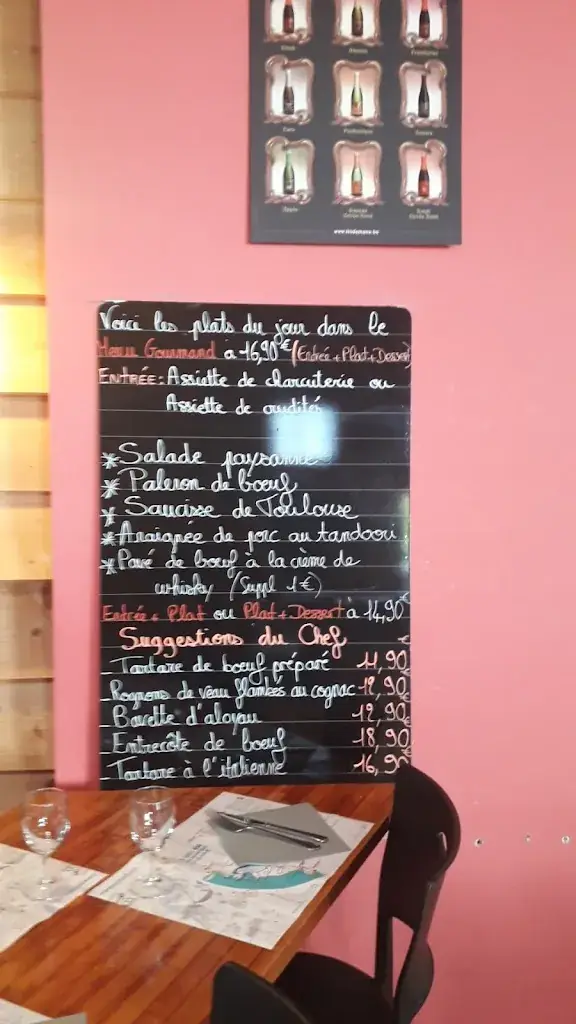 www.lindemans.be
Voici les plats du jour dans le
Menu Gourmand à 16,90€ (Entrée + Plat + Dessert)
ENTRÉE: Assiette de charcuterie ou
Assiette de crudités
* Salade paysanne
* Paleron de boeuf
* Saucisse de Toulouse
* Araignée de porc au tandoori
* Pavé de boeuf à la crème de
whisky (Suppl 1€)
Entrée + Plat ou Plat + Dessert à 14,90€
Suggestions du Chef €
Tartare de boeuf préparé 11,90
Rognons de veau flambées au cognac 12,90
Bavette d'aloyau 12,90
Entrecôte de boeuf 18,90
Tartare à l'italienne 16,90